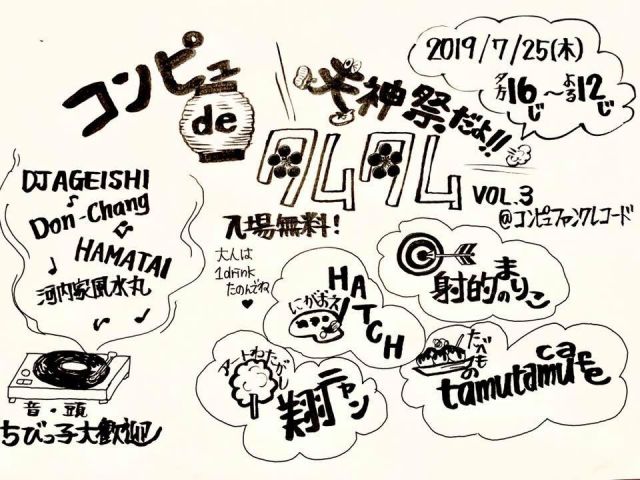 コンピュ
de
タムタム
天神祭だよ!!
2019/7/25(木)
夕方16じ~よる12じ
VOL.3
@コンピュファンクレコード
DJAGEISHI
Don-Chang
HAMATAI
河内家風水丸
入場無料!
大人は
1drink
たのんでね
にがおえ
HATCH
射的のまりこ
アートわたがし
翔ニャン
たべもの
tamutamucafe
音・頭
ちびっ子大歓迎